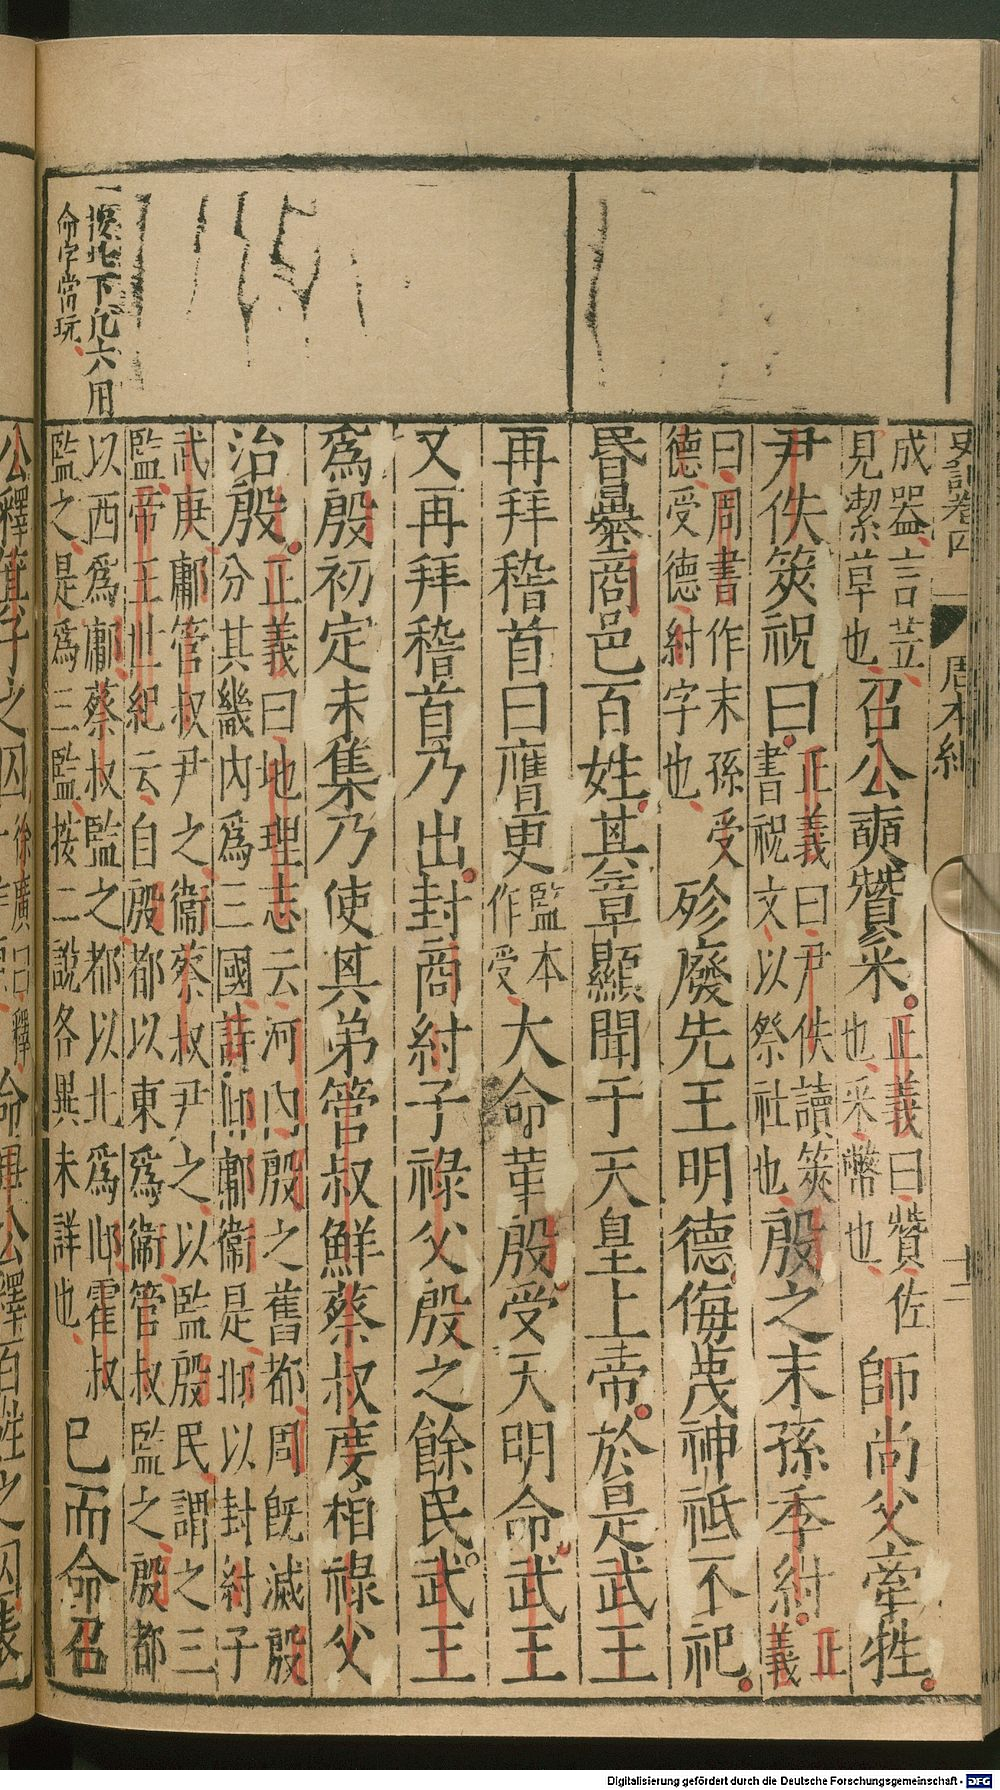 史記卷四 周本紀 十二
成器言苙
見潔草也
召公奭贊采
正義曰贊佐
也采幣也
師尚父牽牲
尹佚筴祝曰
正義曰尹佚讀筴
書祝文以祭社也
殷之末孫季紂
正
義
曰周書作末孫受
德受德紂字也
殄廢先王明德侮蔑神祗不祀
昬曓商邑百姓其章顯聞于天皇上帝於是武王
再拜稽首曰膺更
監本
作受
大命革殷受天明命武王
又再拜稽首乃出封商紂子祿父殷之餘民武王
爲殷初定未集乃使其弟管叔鮮蔡叔度相祿父
治殷
正義曰地理志云河內殷之舊都周旣滅殷
分其畿內爲三國詩邶鄘衞是邶以封紂子
武庚鄘管叔尹之衞蔡叔尹之以監殷民謂之三
監帝王世紀云自殷都以東爲衞管叔監之殷都
以西爲鄘蔡叔監之殷都以北爲邶霍叔
監之是爲三監按二說各異未詳也
已而命召
一按此下凡六用
命字當玩
公釋箕子之囚
徐廣曰釋
命畢公釋百姓之囚表
Digitalisierung gefördert durch die Deutsche Forschungsgemeinschaft - DFG